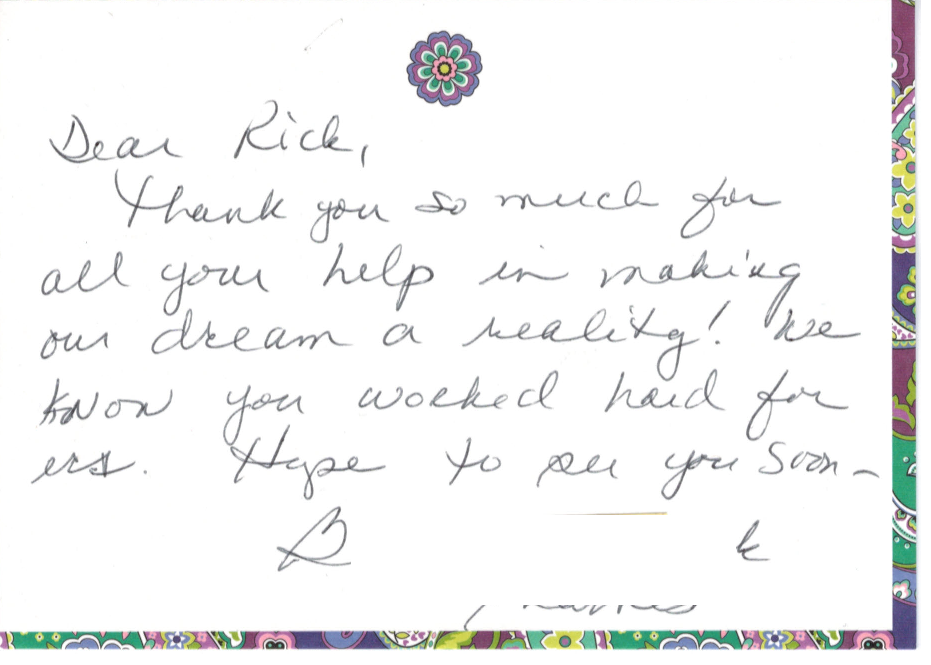 Dear Rick,
Thank you so much for
all your help in making
our dream a reality! We
know you worked hard for
us. Hope to see you soon-
B k